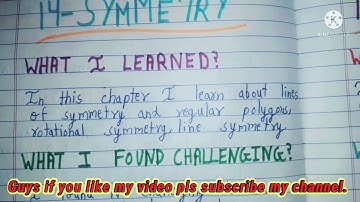 14-SYMMETRY
WHAT I LEARNED?
In this chapter I learn about lines
of symmetry and regular polygons,
rotational symmetry, line symmetry
WHAT I FOUND CHALLENGING?
Guys if you like my video pls subscribe my channel.